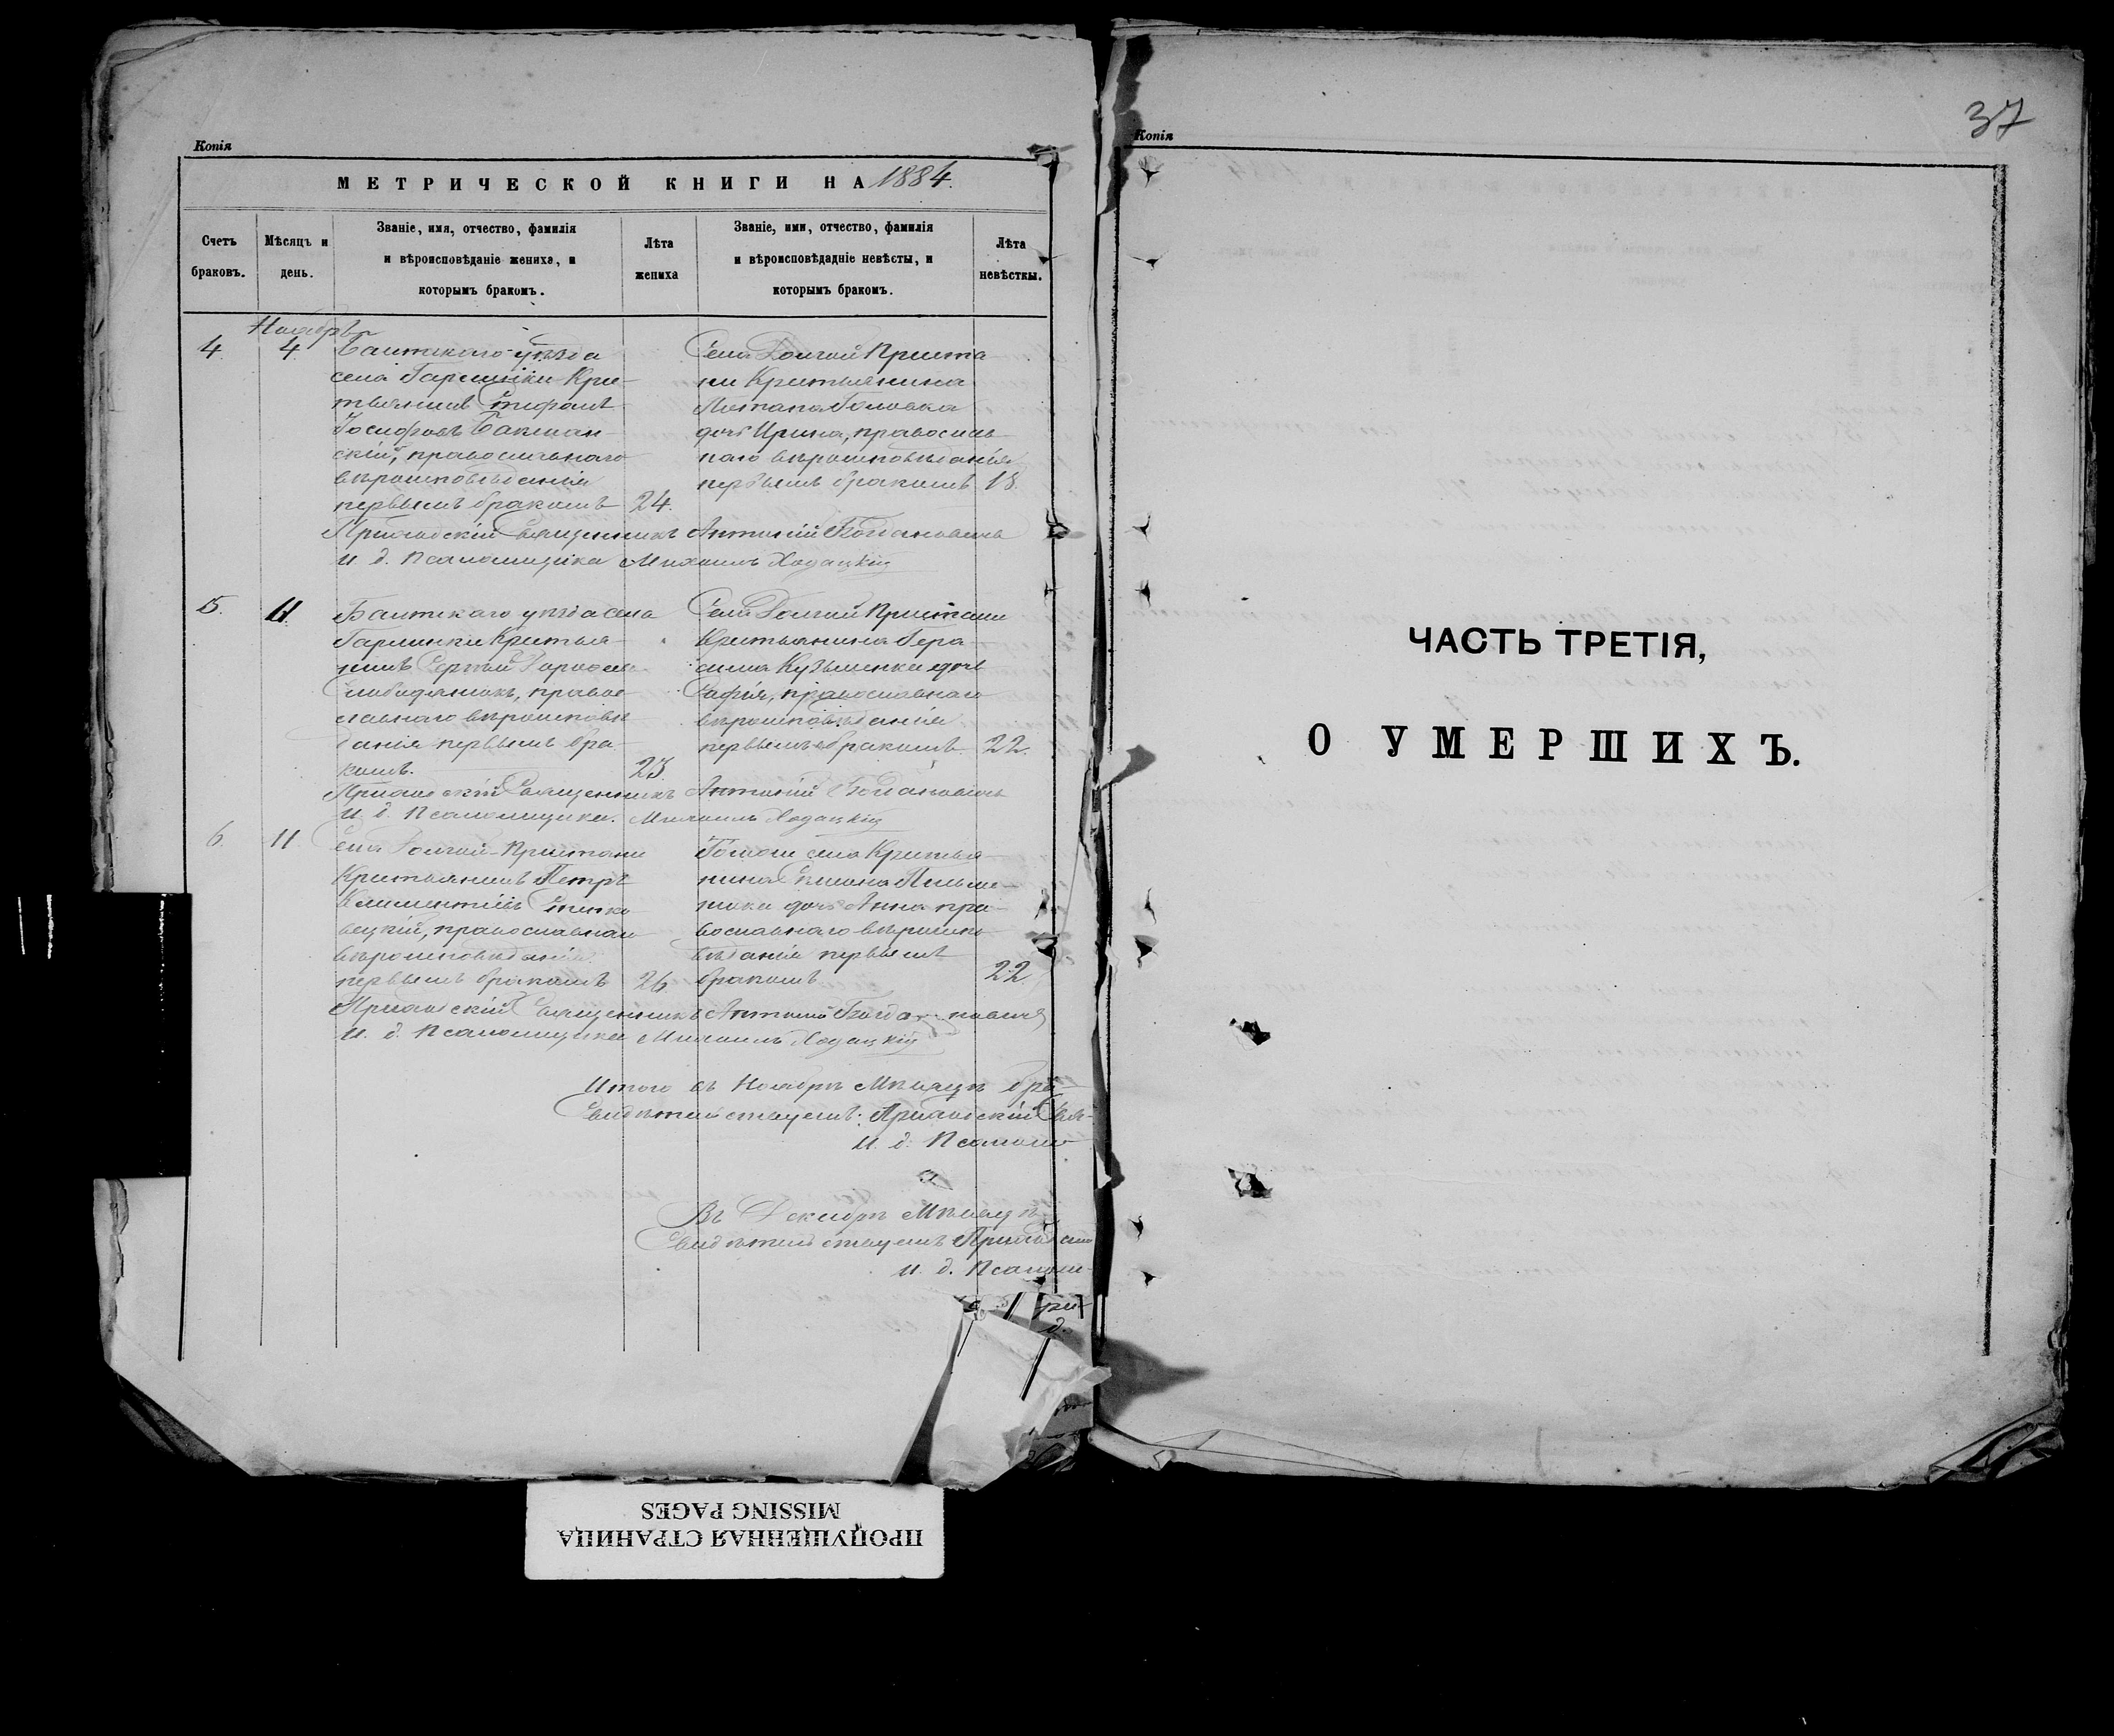 Копія
МЕТРИЧЕСКОЙ КНИГИ НА 1884.
Счетъ браковъ.
Мѣсяцъ и день.
Званіе, имя, отчество, фамилія
и вѣроисповѣданіе жениха, и
которымъ бракомъ.
Лѣта жениха
Званіе, имя, отчество, фамилія
и вѣроисповѣдадніе невѣсты, и
которымъ бракомъ.
Лѣта невѣсткы.
Ноябрь
4. 4.
Балтскаго уѣзда
села Гарминки Кре-
стьянинъ
Іосифовъ Бакман-
скій, православнаго
вѣроисповѣданія
первымъ бракомъ
24.
Села Долгой Приста
ни Крестьянина
Головка
дочь Ирина, православ
наго вѣроисповѣданія
первымъ бракомъ 18.
Приходскій Священникъ Антоній Богдановичъ
И. д. Псаломщика Михаилъ Ходацкій
5. 11.
Балтскаго уѣзда села
Гарминки Крестья-
нинъ Сергѣй
Слободянюкъ, правос
лавнаго вѣроисповѣ
данія первымъ бра-
комъ.
Села Долгой Пристани
Крестьянина Гера-
сима Кузьменки дочь
Софія, православнаго
вѣроисповѣданія
первымъ бракомъ 22.
Приходскій Священникъ Антоній Богдановичъ
И. д. Псаломщика. Михаилъ Ходацкій
6. 11
Села Долгой-Пристани
Крестьянинъ Петръ
Климентіевъ
вецкій, православнаго
вѣроисповѣданія
первымъ бракомъ
26.
села Крестья-
нина
дочь Анна пра-
вославнаго вѣроиспо
вѣданія первымъ
бракомъ
22.
Приходскій Священникъ Антоній Богдановичъ
И. д. Псаломщика Михаилъ Ходацкій
Итого въ Ноябрѣ Мѣсяцѣ бра-
Свидѣтельствуемъ: Приходскій Свя-
И. д. Псаломо
Въ Декабрѣ Мѣсяцѣ
Свидѣтельствуемъ Приходски
И. д. Псалом-
Копія
37
ЧАСТЬ ТРЕТІЯ,
О УМЕРШИХЪ.
ПРОПУЩЕННАЯ СТРАНИЦА
MISSING PAGES